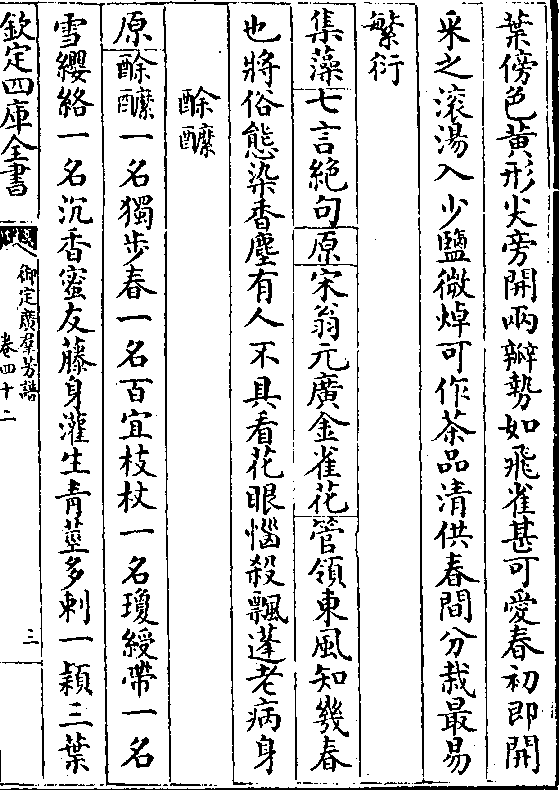 葉傍色黄形尖旁開兩瓣勢如飛雀甚可愛春初即開
采之滚湯入少鹽微焯可作茶品清供春間分栽最易
繁衍
集藻七言絶句原宋翁元廣金雀花管領東風知幾春
也將俗態染香塵有人不具看花眼惱殺飄蓬老病身
酴醿
原酴醿一名獨步春一名百宜枝杖一名瓊綬帶一名
雪纓絡一名沉香蜜友藤身灌生青莖多刺一穎三葉
欽定四庫全書
御定廣羣芳譜
卷四十二
三